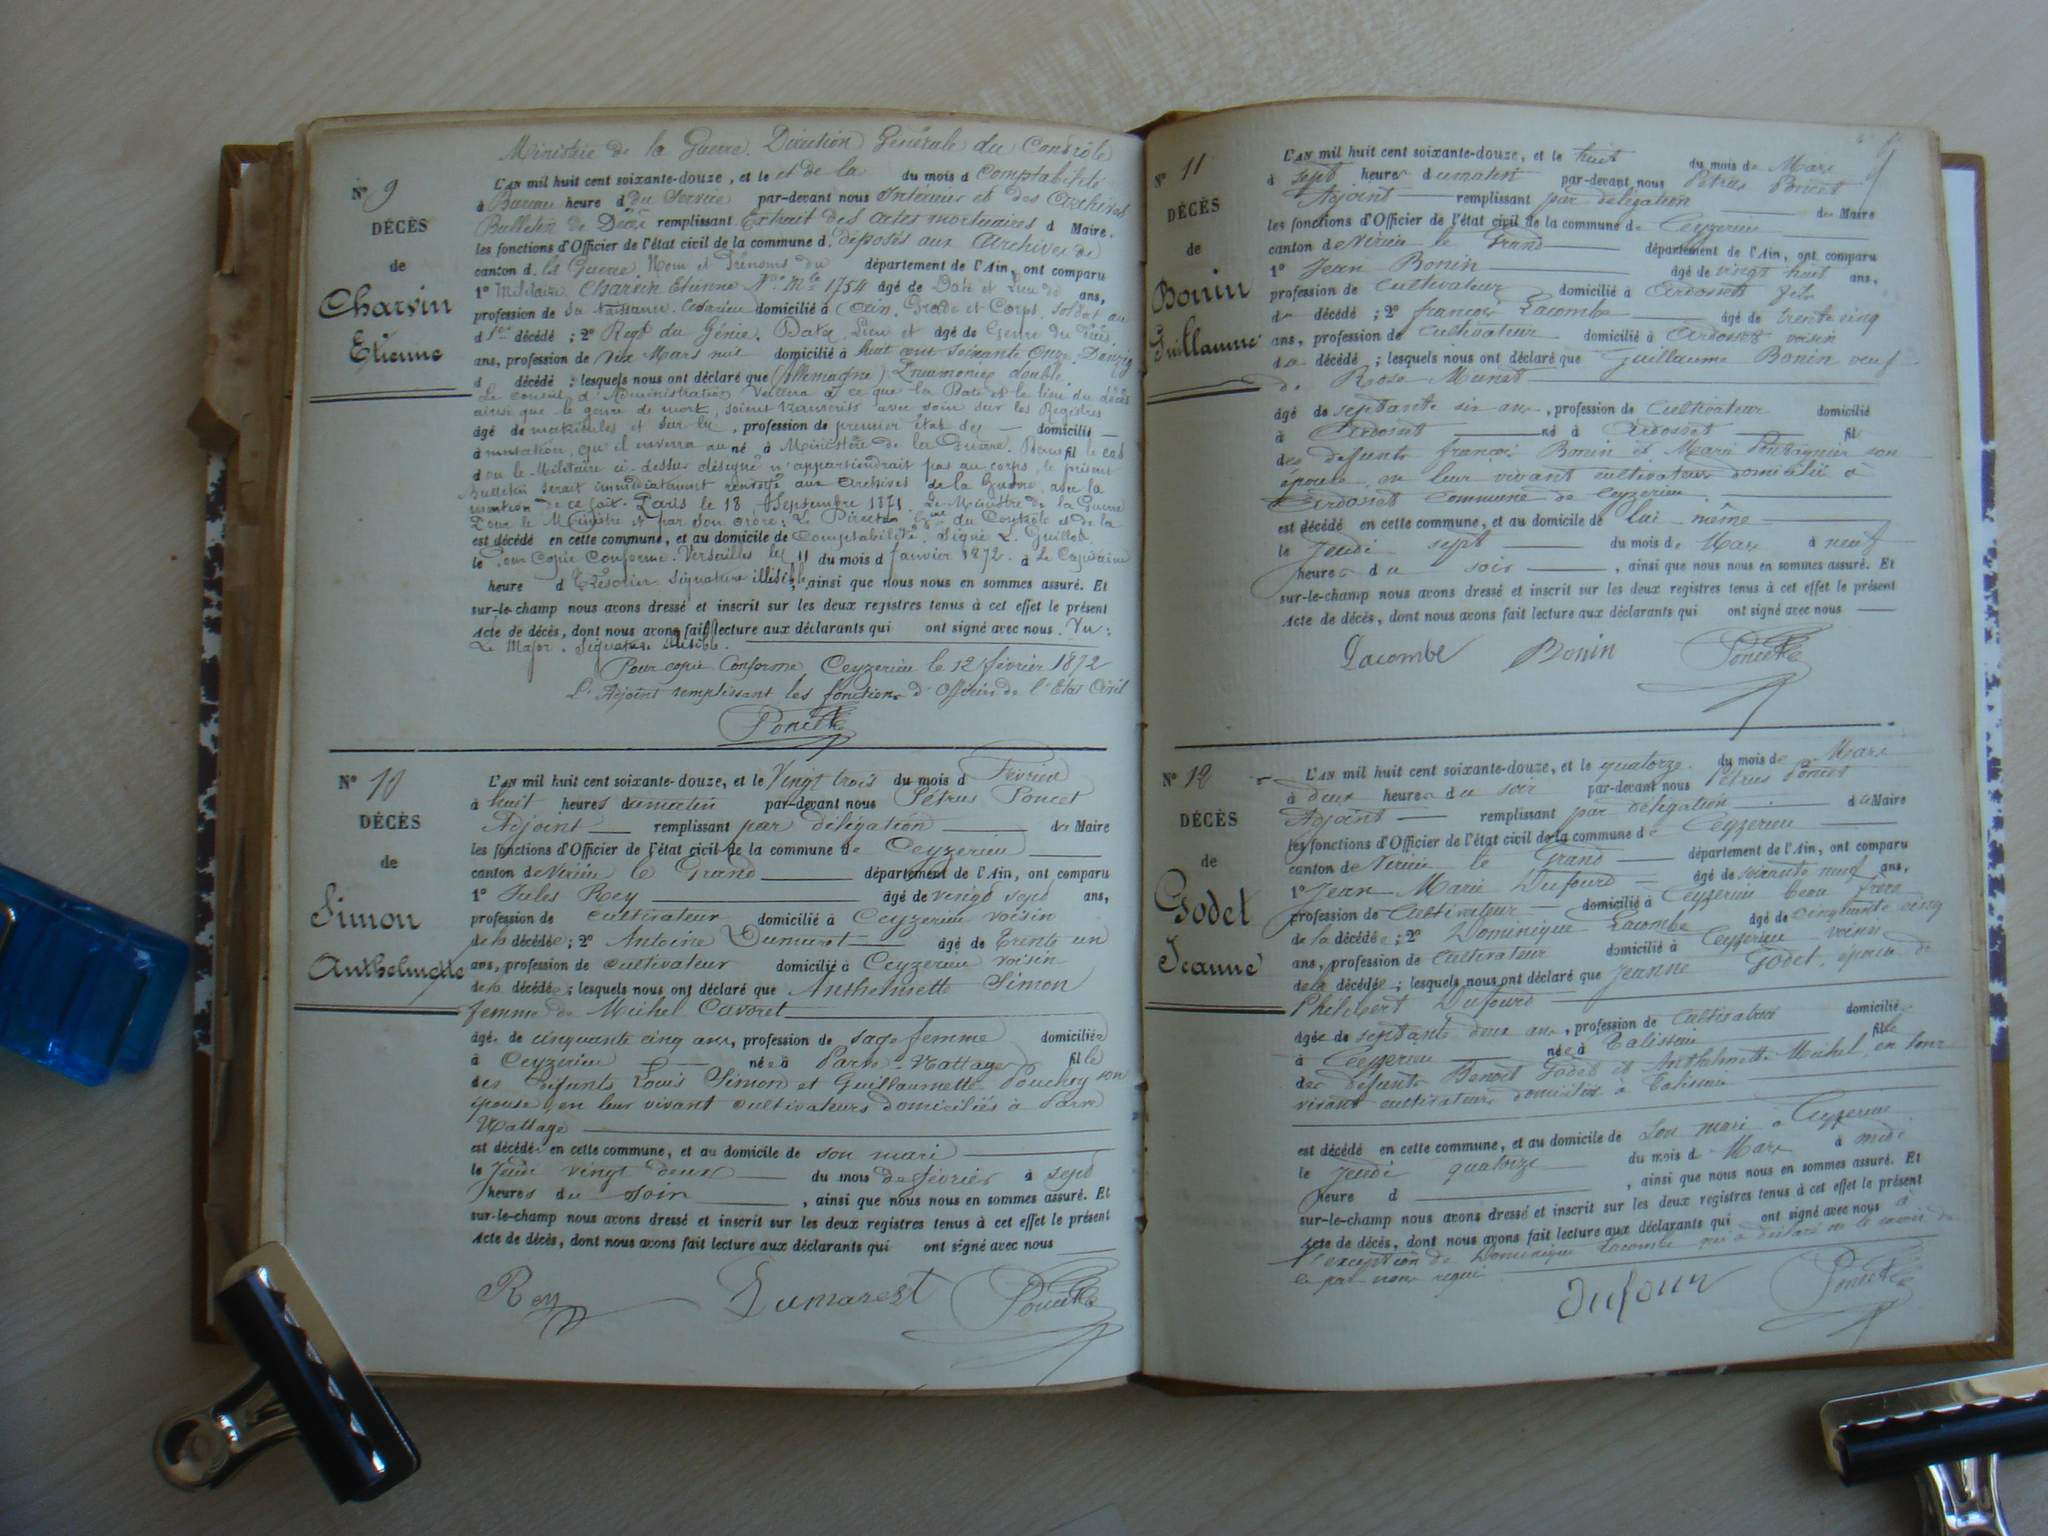 Ministère de la Guerre. Direction Générale du Contrôle
N° 9
L'AN mil huit cent soixante-douze, et le et de la du mois d Comptabilité
à Bureau heure d du Service par-devant nous Intérieur et des Archives
DÉCÈS
Bulletin de Décès remplissant Extrait des actes mortuaires d Maire.
les fonctions d'Officier de l'état civil de la commune d. déposés aux Archives de
de
canton d. la Guerre. Nom et Prénoms du département de l'Ain, ont comparu
Charvin
1° Militaire. Charvin Etienne N° Mle 1754 âgé de Date et Lieu de ans,
profession de Sa Naissance. Ceyzérieu domicilié à (Ain). Grade et Corps. Soldat au
Etienne
d 1er décédé ; 2° Régt du Génie. Date, Lieu et âgé de Genre du Décès
ans, profession de Dix Mars mil domicilié à huit cent soixante Onze. Danzig
d décédé ; lesquels nous ont déclaré que (Allemagne) Pneumonie double.
Le Conseil d'Administration Veillera à ce que la Date et le lieu du décès
ainsi que le genre de mort, soient transcrits avec soin sur les Registres
âgé de matricules et sur le , profession de premier état des domicilié
à mutation, qu'il enverra au né à Ministère de la Guerre. Dans fil le cas
d où le Militaire ci-dessus désigné n'appartiendrait pas au corps, le présent
Bulletin serait immédiatement renvoyé aux Archives de la Guerre, avec la
mention de ce fait. Paris le 18 Septembre 1871. Le Ministre de la Guerre
Pour le Ministre et par son ordre: Le Directeur Gal du Contrôle et de la
est décédé en cette commune, et au domicile de Comptabilité. Signé L. Guillot.
le Pour Copie Conforme. Versailles le 11 du mois d janvier 1872. à Le Capitaine
heure d Trésorier. Signature illisible, ainsi que nous nous en sommes assuré. Et
sur-le-champ nous avons dressé et inscrit sur les deux registres tenus à cet effet le présent
Acte de décès, dont nous avons fait lecture aux déclarants qui ont signé avec nous. Vu:
Le Major. Signature illisible.
Pour copie Conforme Ceyzerieu le 12 février 1872
L'Adjoint remplissant les fonctions d'Officier de l'Etat Civil
Poncet
N° 10
L'AN mil huit cent soixante-douze, et le Vingt trois du mois d Février
à huit heures du matin par-devant nous Pétrus Poncet
DÉCÈS
Adjoint remplissant par délégation du Maire
les fonctions d'Officier de l'état civil de la commune de Ceyzerieu
de
canton de Virieu le Grand département de l'Ain, ont comparu
1° Jules Rey âgé de vingt sept ans,
Simon
profession de cultivateur domicilié à Ceyzerieu voisin
de la décédée ; 2° Antoine Dumarest âgé de trente un
Anthelmette
ans, profession de cultivateur domicilié à Ceyzerieu voisin
de la décédée ; lesquels nous ont déclaré que Anthelmette Simon
femme de Michel Cavoret
âgée de cinquante cinq ans, profession de sage femme domiciliée
à Ceyzerieu née à Parve-Nattage fille
des défunts Louis Simon et Guillaumette Pouchoy son
épouse, en leur vivant cultivateurs domiciliés à Parve
Nattage
est décédée en cette commune, et au domicile de son mari
le Jeudi vingt deux du mois de février à sept
heures du soir , ainsi que nous nous en sommes assuré. Et
sur-le-champ nous avons dressé et inscrit sur les deux registres tenus à cet effet le présent
Acte de décès, dont nous avons fait lecture aux déclarants qui ont signé avec nous
Rey Dumarest Poncet
N° 11
L'AN mil huit cent soixante-douze, et le huit du mois de Mars
à sept heures du matin par-devant nous Pétrus Poncet
DÉCÈS
Adjoint remplissant par délégation du Maire
les fonctions d'Officier de l'état civil de la commune de Ceyzerieu
de
canton de Virieu le Grand département de l'Ain, ont comparu
Bonin
1° Jean Bonin âgé de vingt huit ans,
profession de Cultivateur domicilié à Ardosset fils
Guillaume
du décédé ; 2° françois Lacombe âgé de trente cinq
ans, profession de Cultivateur domicilié à Ardosset voisin
du décédé ; lesquels nous ont déclaré que Guillaume Bonin veuf
de Rose Munet
âgé de septante six ans, profession de Cultivateur domicilié
à Ardosset né à Ardosset fil
des defunts françois Bonin et Marie son
épouse en leur vivant cultivateurs domiciliés à
Ardosset commune de Ceyzerieu.
est décédé en cette commune, et au domicile de lui même
le Jeudi sept du mois de Mars à neuf
heures du soir , ainsi que nous nous en sommes assuré. Et
sur-le-champ nous avons dressé et inscrit sur les deux registres tenus à cet effet le présent
Acte de décès, dont nous avons fait lecture aux déclarants qui ont signé avec nous
Lacombe Bonin Poncet
N° 12
L'AN mil huit cent soixante-douze, et le quatorze du mois de Mars
à deux heures du soir par-devant nous Pétrus Poncet
DÉCÈS
Adjoint remplissant par délégation du Maire
les fonctions d'Officier de l'état civil de la commune de Ceyzerieu
de
canton de Virieu le Grand département de l'Ain, ont comparu
Godet
1° Jean Marie Dufourd âgé de soixante neuf ans,
profession de Cultivateur domicilié à Ceyzerieu beau frère
Jeanne
de la décédée ; 2° Dominique Lacombe âgé de cinquante cinq
ans, profession de Cultivateur domicilié à Ceyzerieu voisin
de la décédée ; lesquels nous ont déclaré que Jeanne Godet, épouse de
Philibert Dufourd
âgée de septante deux ans, profession de Cultivatrice domiciliée
à Ceyzerieu née à Talissieu fille
des défunts Benoit Godet et Anthelmette Michel, en leur
vivant cultivateurs domiciliés à Talissieu
est décédé en cette commune, et au domicile de son mari à Ceyzerieu
le Jeudi quatorze du mois d Mars à midi
heure d , ainsi que nous nous en sommes assuré. Et
sur-le-champ nous avons dressé et inscrit sur les deux registres tenus à cet effet le présent
Acte de décès, dont nous avons fait lecture aux déclarants qui ont signé avec nous à
l'exception de Dominique Lacombe qui a déclaré ne le savoir de
ce par nous requi
Dufour Poncet